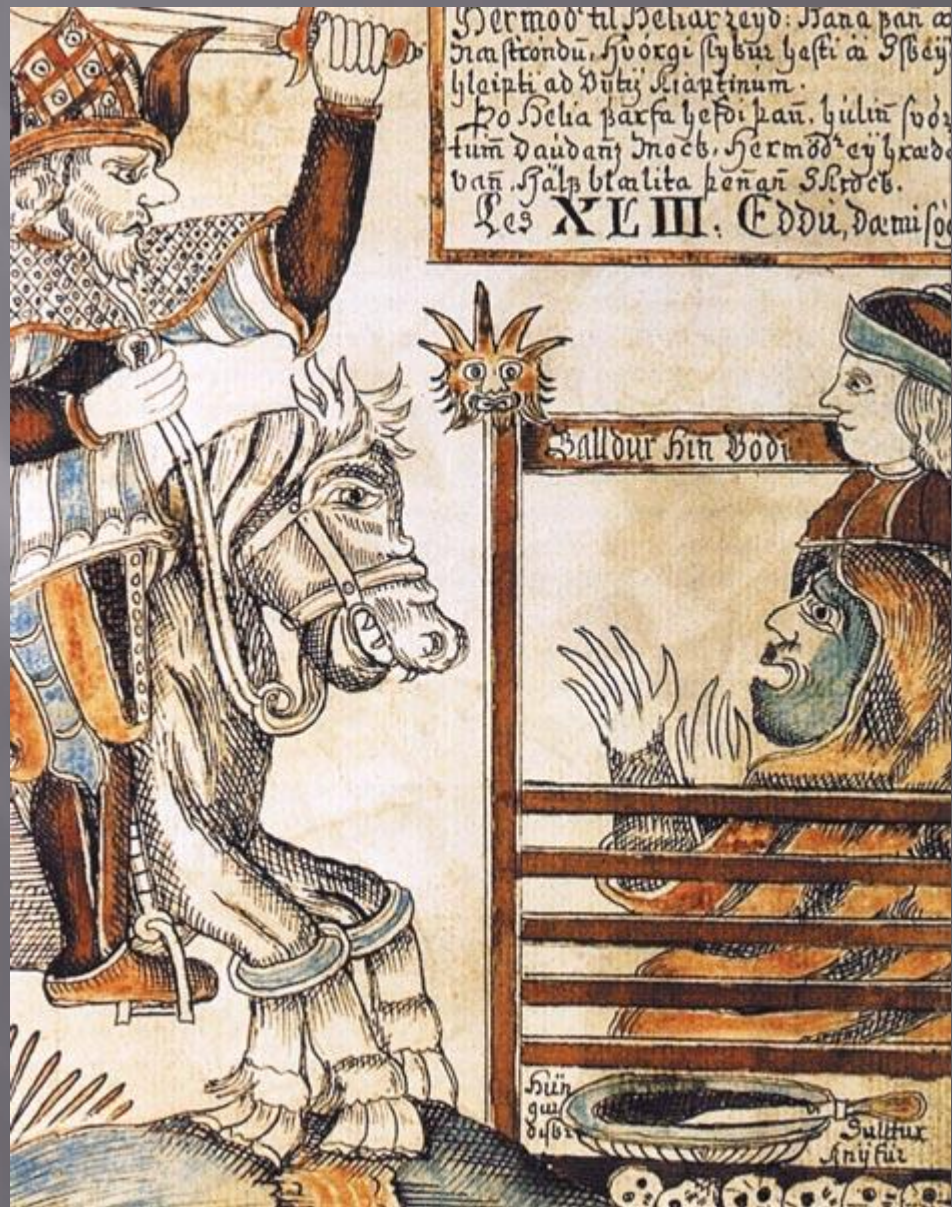 Hermod' til Heliar reyd: Hana þan a
Naströndu, Hvórgi stybur hesti æ Isbey
hleipti ad Vytis Kiaptinum.
Þo Helia þarfa hefdi þan, hulin svor
tum Daudans Mock, Hermod' ey hrædd
van, Hälf blælita þenan Skrock.
Les XLIII. Eddu, Dæmisög
Balldur hin Godi
Hün
gur
disk
Sulltur
knyfur